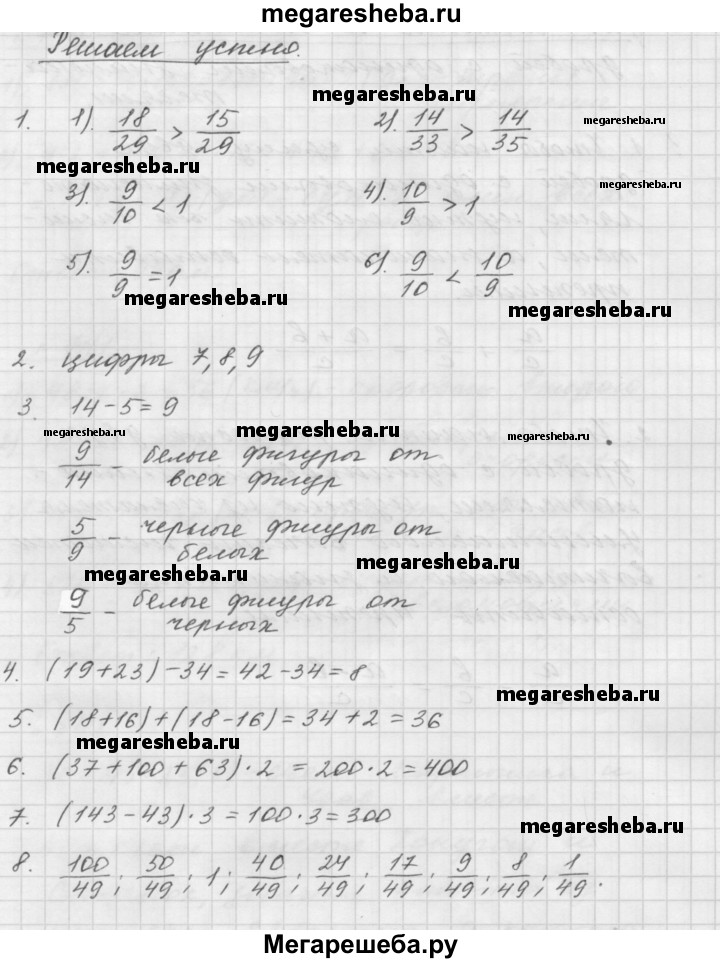 megaresheba.ru
Решаем устно.
megaresheba.ru
1. 1). 18/29 > 15/29 2). 14/33 > 14/35
megaresheba.ru
megaresheba.ru
3). 9/10 < 1 4). 10/9 > 1
megaresheba.ru
5). 9/9 = 1 6). 9/10 < 10/9
megaresheba.ru
megaresheba.ru
2. цифры 7, 8, 9
3. 14 - 5 = 9
megaresheba.ru megaresheba.ru megaresheba.ru
9/14 - белые фигуры от
всех фигур
5/9 - черные фигуры от
белых
megaresheba.ru
megaresheba.ru
9/5 - белые фигуры от
черных
4. (19+23) - 34 = 42 - 34 = 8
megaresheba.ru
5. (18+16)+(18-16) = 34 + 2 = 36
megaresheba.ru
6. (37+100+63)·2 = 200·2 = 400
7. (143-43)·3 = 100·3 = 300
megaresheba.ru
8. 100/49; 50/49; 1; 40/49; 24/49; 17/49; 9/49; 8/49; 1/49.
Мегарешеба.ру